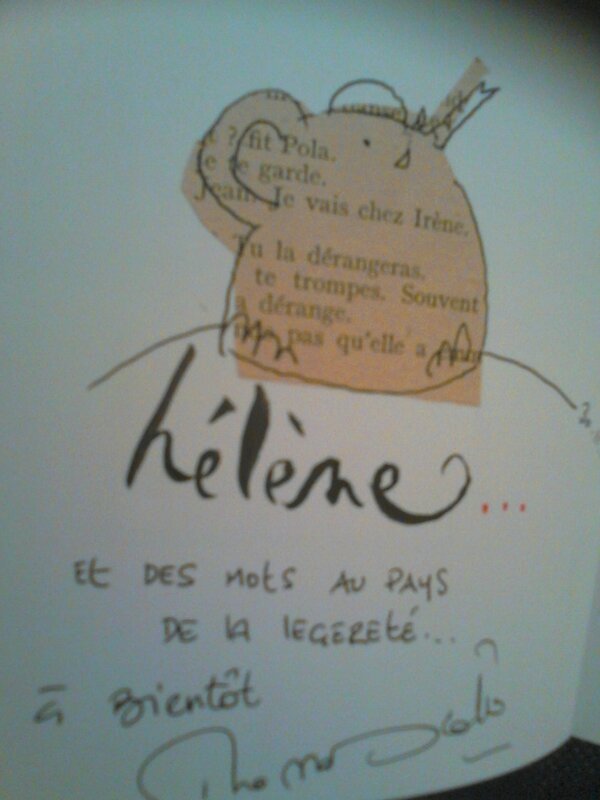 ? fit Pola.
garde.
Jean. Je vais chez Irène.
Tu la dérangeras.
te trompes. Souvent
dérange.
pas qu'elle a
hélène...
Et DES MOTS AU PAYS
DE LA LEGERETÉ...
à Bientôt